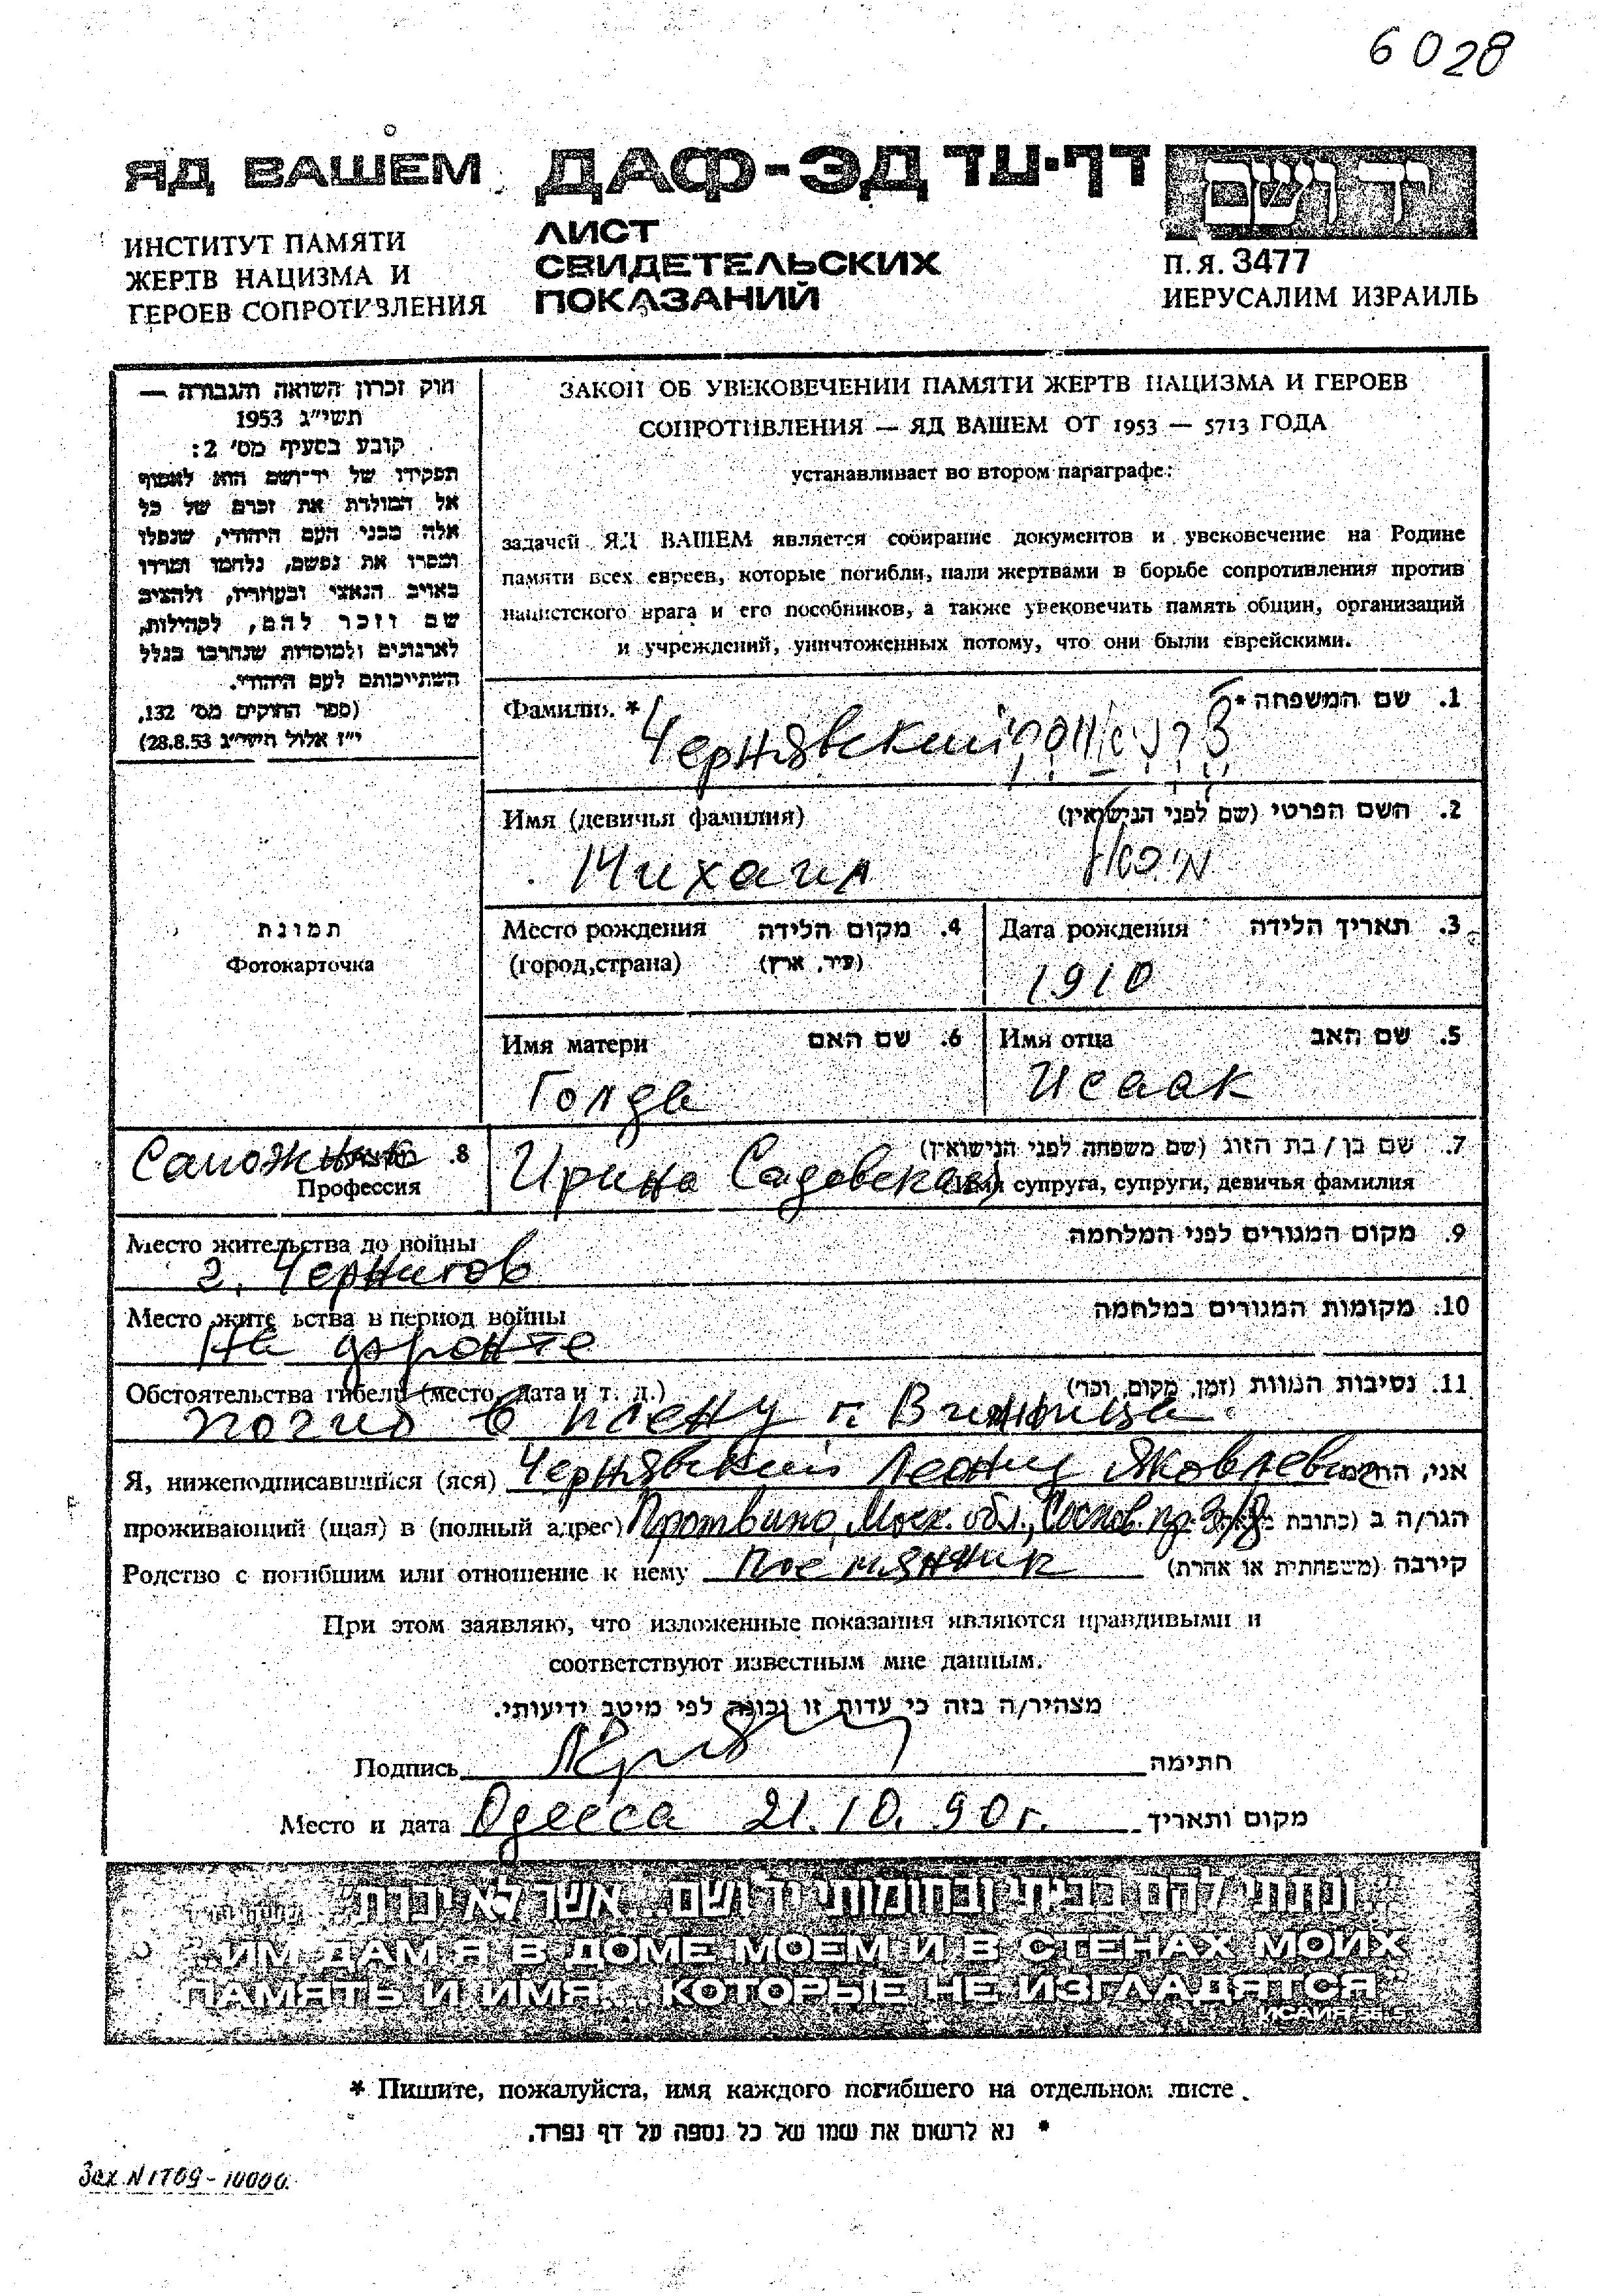 6028
ЯД ВАШЕМ
ИНСТИТУТ ПАМЯТИ
ЖЕРТВ НАЦИЗМА И
ГЕРОЕВ СОПРОТИВЛЕНИЯ
ДАФ-ЭД דף-עד
ЛИСТ
СВИДЕТЕЛЬСКИХ
ПОКАЗАНИЙ
יד ושם
П.Я. 3477
ИЕРУСАЛИМ ИЗРАИЛЬ
חוק זכרון השואה והגבורה —
תשי״ג 1953
קובע בסעיף מס׳ 2:
תפקידו של יד-ושם הוא לאסוף
אל המולדת את זכרם של כל
אלה מבני העם היהודי, שנפלו
ומסרו את נפשם, נלחמו ומרדו
באויב הנאצי ובעוזריו, ולהציב
שם וזכר להם, לקהילות,
לארגונים ולמוסדות שנחרבו בגלל
השתייכותם לעם היהודי.
(ספר החוקים מס׳ 132,
י״ז אלול תשי״ג 28.8.53)
ЗАКОН ОБ УВЕКОВЕЧЕНИИ ПАМЯТИ ЖЕРТВ НАЦИЗМА И ГЕРОЕВ
СОПРОТИВЛЕНИЯ — ЯД ВАШЕМ ОТ 1953 — 5713 ГОДА
устанавливает во втором параграфе:
задачей ЯД ВАШЕМ является собирание документов и увековечение на Родине
памяти всех евреев, которые погибли, пали жертвами в борьбе сопротивления против
нацистского врага и его пособников, а также увековечить память общин, организаций
и учреждений, уничтоженных потому, что они были еврейскими.
Фамилия * 1. שם המשפחה*
Чернявский
Имя (девичья фамилия) 2. השם הפרטי (שם לפני הנישואין)
Михаил מיכאל
תמונת
Фотокарточка
Место рождения 4. מקום הלידה
(город, страна) (עיר, ארץ)
Дата рождения 3. תאריך הלידה
1910
Имя матери 6. שם האם
Голда
Имя отца 5. שם האב
Исаак
Сапожник 8.
Профессия
7. שם בן / בת הזוג (שם משפחה לפני הנישואין)
Ирина Садовская Имя супруга, супруги, девичья фамилия
Место жительства до войны 9. מקום המגורים לפני המלחמה
г. Чернигов
Место жительства в период войны 10. מקומות המגורים במלחמה
На фронте
Обстоятельства гибели (место, дата и т. д.) 11. נסיבות המוות (זמן, מקום, וכו׳)
погиб в плену г. Винница
Я, нижеподписавшийся (яся) Чернявский Леонид Яковлевич אני, הח״מ
проживающий (щая) в (полный адрес) Протвино, Моск. обл., Соснов. пр. 3/8 הגר/ה ב (כתובת
Родство с погибшим или отношение к нему племянник קירבה (משפחתית או אחרת)
При этом заявляю, что изложенные показания являются правдивыми и
соответствуют известным мне данным.
מצהיר/ה בזה כי עדות זו נכונה לפי מיטב ידיעותי.
Подпись חתימה
Место и дата Одесса 21.10.90г. מקום ותאריך
„..ונתתי להם בביתי ובחומותי יד ושם... אשר לא יכרת”
"...ИМ ДАМ Я В ДОМЕ МОЕМ И В СТЕНАХ МОИХ
ПАМЯТЬ И ИМЯ... КОТОРЫЕ НЕ ИЗГЛАДЯТСЯ"
* Пишите, пожалуйста, имя каждого погибшего на отдельном листе.
* נא לרשום את שמו של כל נספה על דף נפרד.
Зак. N 1709-10000.